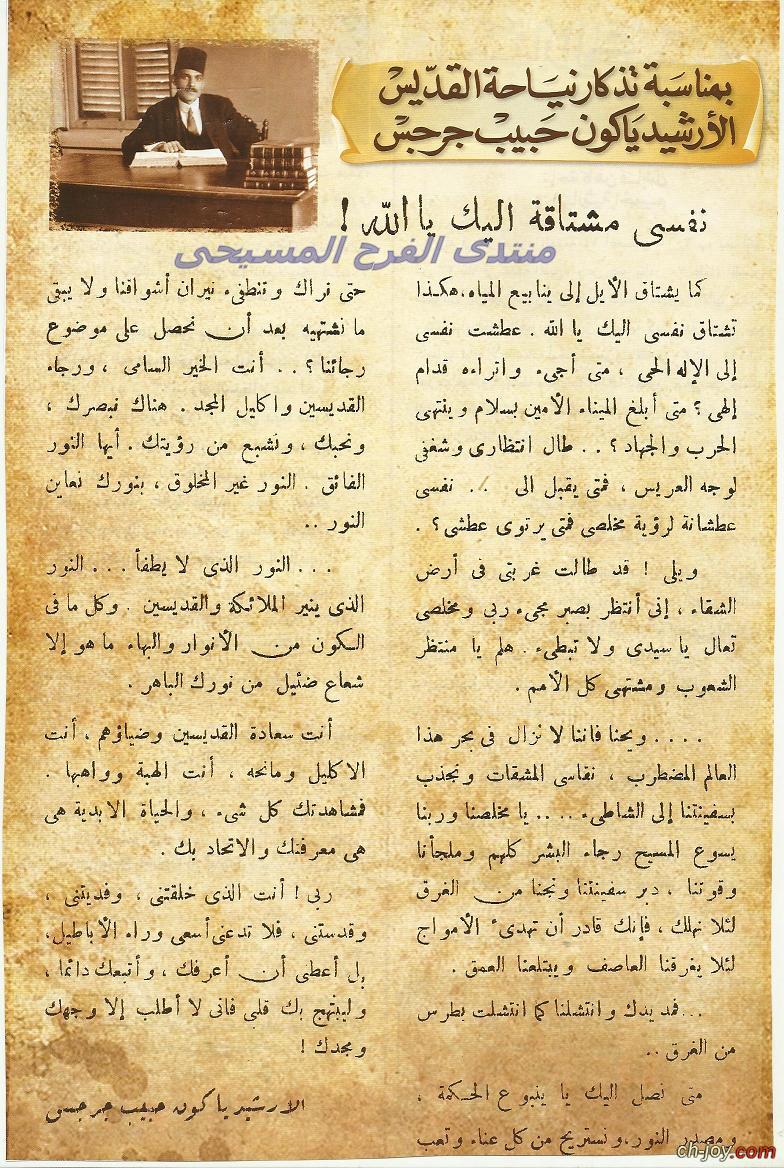 بمناسبة تذكار نياحة القديس
الأرشيدياكون حبيب جرجس
نفسى مشتاقة اليك يا الله !
منتدى الفرح المسيحى
كما يشتاق الأيل إلى ينابيع المياه، هكذا
تشتاق نفسى اليك يا الله . عطشت نفسى
إلى الإله الحى ، متى أجىء واتراءه قدام
إلهى ؟ متى أبلغ الميناء الأمين بسلام وينتهى
الحرب والجهاد ؟ . . طال انتظارى وشغفى
لوجه العريس ، فمتى يقبل الى . . نفسى
عطشانة لرؤية مخلصى فمتى يرتوى عطشى ؟ .
ويلى ! قد طالت غربتى فى أرض
الشقاء ، إنى أنتظر بصبر مجىء ربى ومخلصى
تعال يا سيدى ولا تبطىء . هلم يا منتظر
الشعوب ومشتهى كل الأمم .
. . . . ويحنا فاننا لا نزال فى بحر هذا
العالم المضطرب ، نقاسى المشقات ونجذب
بسفينتنا إلى الشاطىء . . . . يا مخلصنا وربنا
يسوع المسيح رجاء البشر كلهم وملجأنا
وقوتنا ، دبر سفينتنا ونجنا من الغرق
لئلا نهلك ، فإنك قادر أن تهدىء الأمواج
لئلا يغرقنا العاصف ويبتلعنا العمق .
. . . فمد يدك وانتشلنا كما انتشلت بطرس
من الغرق . .
متى نصل اليك يا ينبوع الحكمة ،
ومصدر النور ، ونستريح من كل عناء وتعب
حتى نراك وتنطفىء نيران أشواقنا ولا يبقى
ما نشتهيه بعد أن نحصل على موضوع
رجائنا ؟ . . أنت الخير السامى ، ورجاء
القديسين واكليل المجد . هناك نبصرك ،
ونحبك ، ونشبع من رؤيتك . أيها النور
الفائق . النور غير المخلوق ، بنورك نعاين
النور . .
. . . النور الذى لا يطفأ . . . النور
الذى ينير الملائكة والقديسين . وكل ما فى
الكون من الأنوار والبهاء ما هو إلا
شعاع ضئيل من نورك الباهر .
أنت سعادة القديسين وضياؤهم ، أنت
الاكليل ومانحه ، أنت الهبة وواهبها .
فمشاهدتك كل شىء ، والحياة الابدية هى
هى معرفتك والاتحاد بك .
ربى ! أنت الذى خلقتنى ، وفديتنى ،
وقدستنى ، فلا تدعنى أسعى وراء الأباطيل،
بل أعطنى أن أعرفك ، وأتبعك دائما ،
وليبتهج بك قلبى فانى لا أطلب إلا وجهك
ومجدك !
الارشيدياكون حبيب جرجس
ch-joy.com